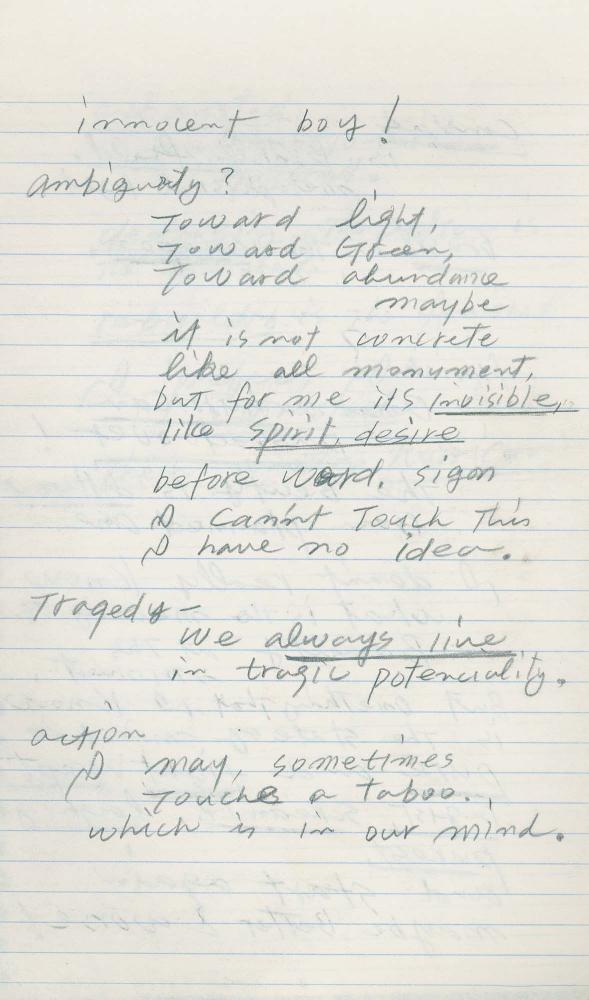 innocent boy!
ambiguity?
Toward light,
Toward Green,
Toward abundance
maybe
it is not concrete
like all monument,
but for me its invisible,
like spirit, desire
before word. sign
I cann't Touch This
I have no idea.
Tragedy-
we always live
in tragic potenciality.
action
I may, sometimes
Touche a taboo.
which is in our mind.